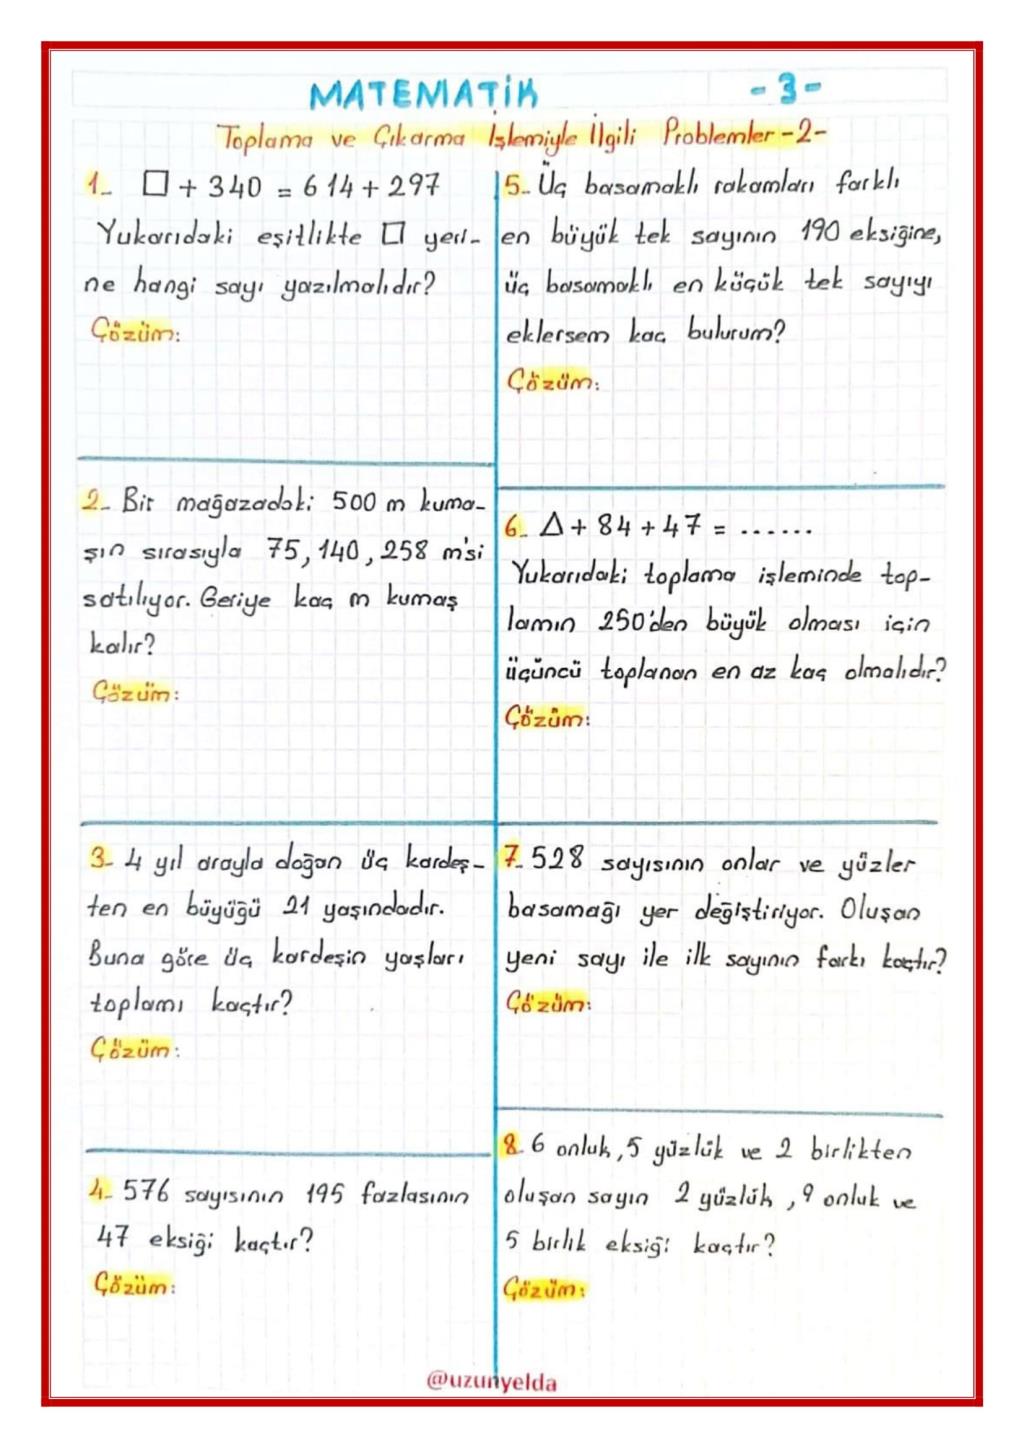 MATEMATİK -3-
Toplama ve Çıkarma İşlemiyle İlgili Problemler -2-
1- □ + 340 = 614 + 297
Yukarıdaki eşitlikte □ yeri-
ne hangi sayı yazılmalıdır?
Çözüm:
2- Bir mağazadaki 500 m kuma-
şın sırasıyla 75, 140, 258 m'si
satılıyor. Geriye kaç m kumaş
kalır?
Çözüm:
3- 4 yıl arayla doğan üç kardeş-
ten en büyüğü 21 yaşındadır.
Buna göre üç kardeşin yaşları
toplamı kaçtır?
Çözüm:
4- 576 sayısının 195 fazlasının
47 eksiği kaçtır?
Çözüm:
5- Üç basamaklı rakamları farklı
en büyük tek sayının 190 eksiğine,
üç basamaklı en küçük tek sayıyı
eklersem kaç bulurum?
Çözüm:
6- Δ + 84 + 47 = ......
Yukarıdaki toplama işleminde top-
lamın 250'den büyük olması için
üçüncü toplanan en az kaç olmalıdır?
Çözüm:
7- 528 sayısının onlar ve yüzler
basamağı yer değiştiriyor. Oluşan
yeni sayı ile ilk sayının farkı kaçtır?
Çözüm:
8- 6 onluk, 5 yüzlük ve 2 birlikten
oluşan sayın 2 yüzlük, 9 onluk ve
5 birlik eksiği kaçtır?
Çözüm:
@uzunyelda